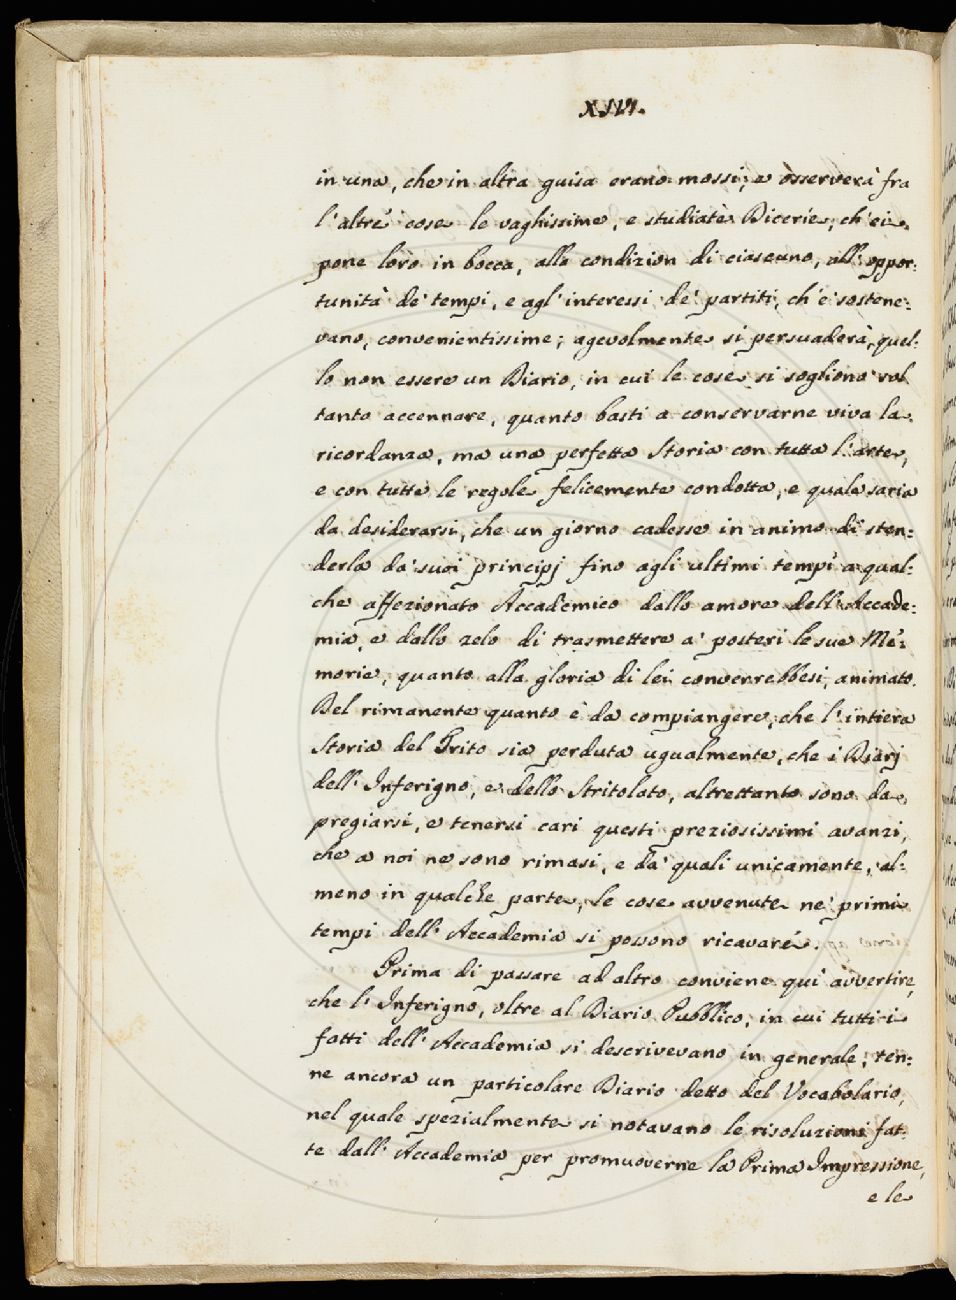 XIVI.
in una, che in altra guisa erano mossi; e osserverà fra
l'altre cose le vaghissime, e studiate Dicerie, ch'ei
pone loro in bocca, alla condizion di ciascuno, all'oppor:
tunità de' tempi, e agl'interessi de' partiti, ch'e' sostene:
vano, convenientissime; agevolmente si persuaderà, quel:
lo non essere un Diario, in cui le cose si sogliono sol
tanto accennare, quanto basti a conservarne viva la
ricordanza, ma una perfetta Storia con tutta l'arte,
e con tutte le regole felicemente condotta, e quale saria
da desiderarsi, che un giorno cadesse in animo di sten:
derla da' suoi principj fino agli ultimi tempi a qual:
che affezionato Accademico dallo amore dell'Accade:
mia, e dallo zelo di trasmettere a' posteri le sue Me:
morie, quanto alla gloria di lei converrebbesi, animato.
Del rimanente quanto è da compiangere, che l'intiera
Storia del Trito sia perduta ugualmente, che i Diarj
dell'Inferigno, e dello Stritolato, altrettanto sono da
pregiarsi, e tenersi cari questi preziosissimi avanzi,
che a noi ne sono rimasi, e da' quali unicamente, al:
meno in qualche parte, le cose avvenute ne' primi
tempi dell'Accademia si possono ricavare.
Prima di passare ad altro conviene qui avvertire,
che l'Inferigno, oltre al Diario Pubblico, in cui tutti i
fatti dell'Accademia si descrivevano in generale, ten:
ne ancora un particolare Diario detto del Vocabolario,
nel quale spezialmente si notavano le risoluzioni fat:
te dall'Accademia per promuoverne la Prima Impressione,
e le